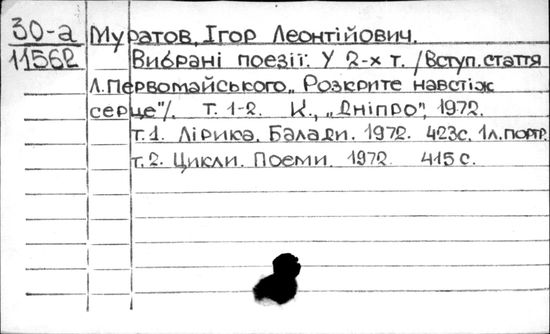 30-а Муратов, Ігор Леонтійович.
11562 Вибрані поезії. У 2-х т. /Вступ.стаття
Л.Первомайського „Розкрите навстіж
серце"/. т. 1-2. К., „Дніпро", 1972.
т.1. Лірика. Балади. 1972. 423с. 1л.портр.
т.2. Цикли. Поеми. 1972. 415с.